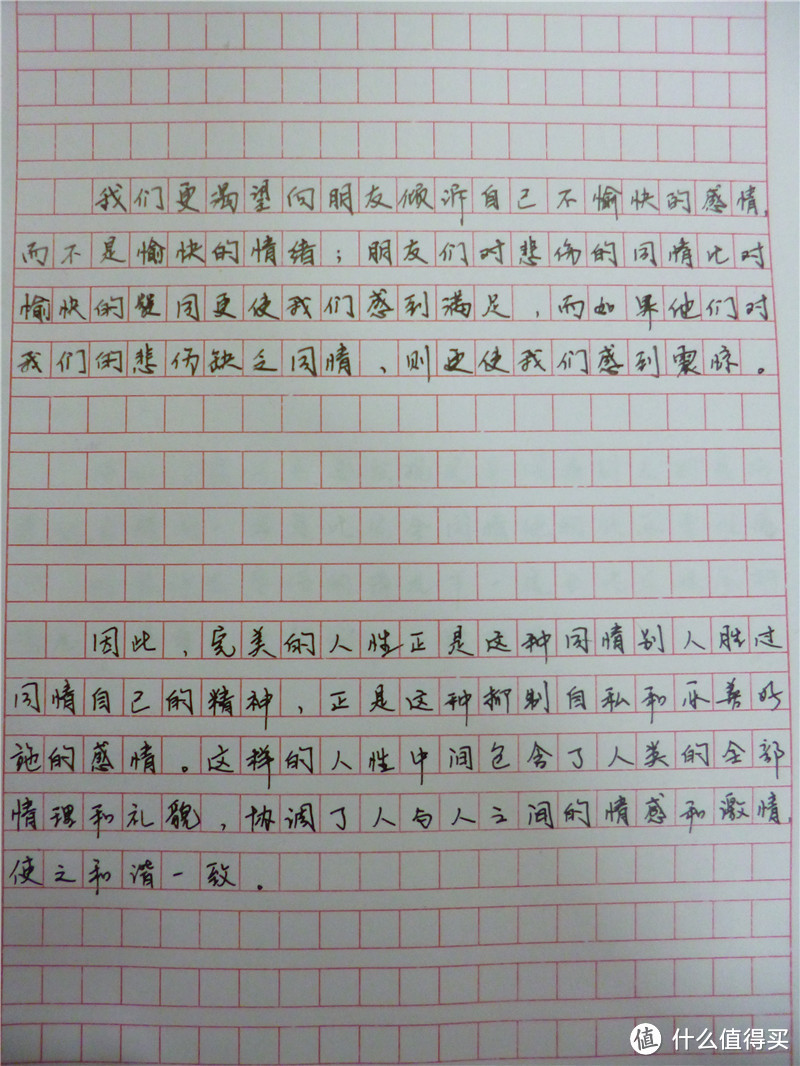 我们更渴望向朋友倾诉自己不愉快的感情,
而不是愉快的情绪；朋友们对悲伤的同情比对
愉快的疑同更使我们感到满足，而如果他们对
我们的悲伤缺乏同情、则更使我们感到震惊。
因此，完美的人性正是这种同情别人胜过
同情自己的精神，正是这种抑制自私和乐善好
施的感情。这样的人性中间包含了人类的全部
情理和礼貌，协调了人与人之间的情感和激情,
使之和谐一致。
值 什么值得买